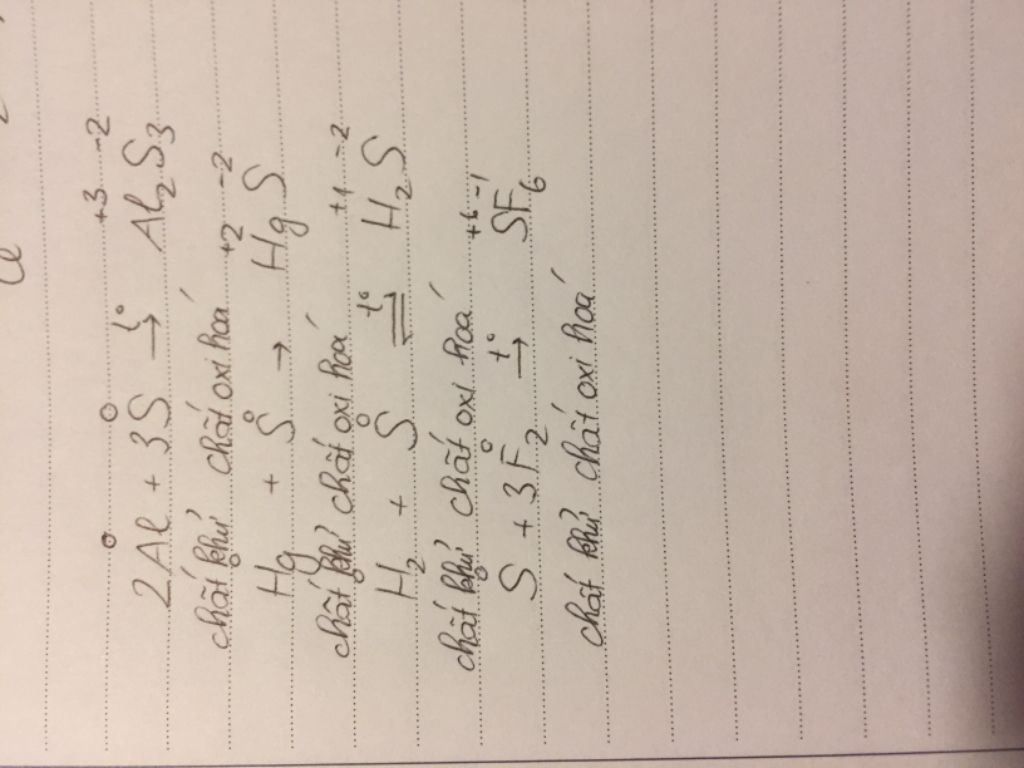 0 0 +3 -2
2Al + 3S →t° Al2S3
chất khử chất oxi hoá
0 +2 -2
Hg + S → HgS
chất khử chất oxi hoá
0 +1 -2
H2 + S ⇌t° H2S
chất khử chất oxi hoá
0 +6 -1
S + 3F2 →t° SF6
chất khử chất oxi hoá